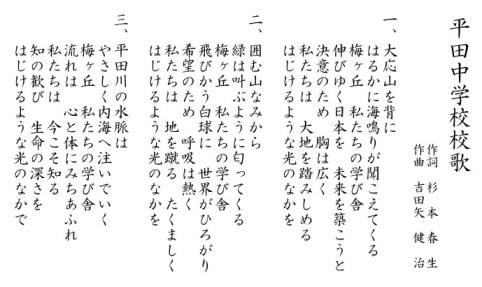 平田中学校校歌
作詞 杉本春生
作曲 吉田矢健治
一、大応山を背に
はるかに海鳴りが聞こえてくる
梅ヶ丘 私たちの学び舎
伸びゆく日本を 未来を築こうと
決意のため 胸は広く
私たちは 大地を踏みしめる
はじけるような光のなかを
二、囲む山なみから
緑は叫ぶように匂ってくる
梅ヶ丘 私たちの学び舎
飛びかう白球に 世界がひろがり
希望のため 呼吸は熱く
私たちは 地を蹴る たくましく
はじけるような光のなかを
三、平田川の水脈は
やさしく内海へ注いでいく
梅ヶ丘 私たちの学び舎
流れは 心と体にみちあふれ
私たちは 今こそ知る
知の歓び 生命の深さを
はじけるような光のなかで